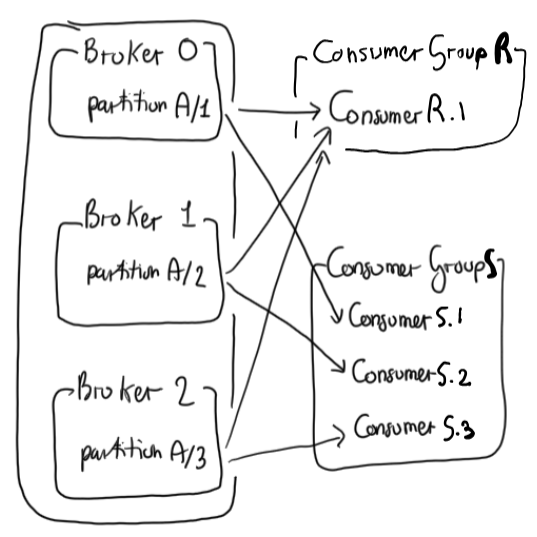 Broker 0
partition A/1
Broker 1
partition A/2
Broker 2
partition A/3
Consumer Group R
Consumer R.1
Consumer Group S
Consumer S.1
Consumer S.2
Consumer S.3